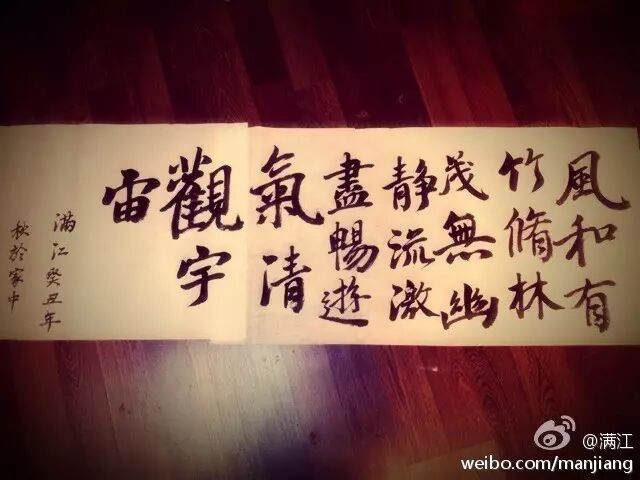 風和有
竹脩林
茂無幽
静流激
盡暢遊
氣清
觀宇
雷
满江癸丑年
秋於家中
@满江
weibo.com/manjiang